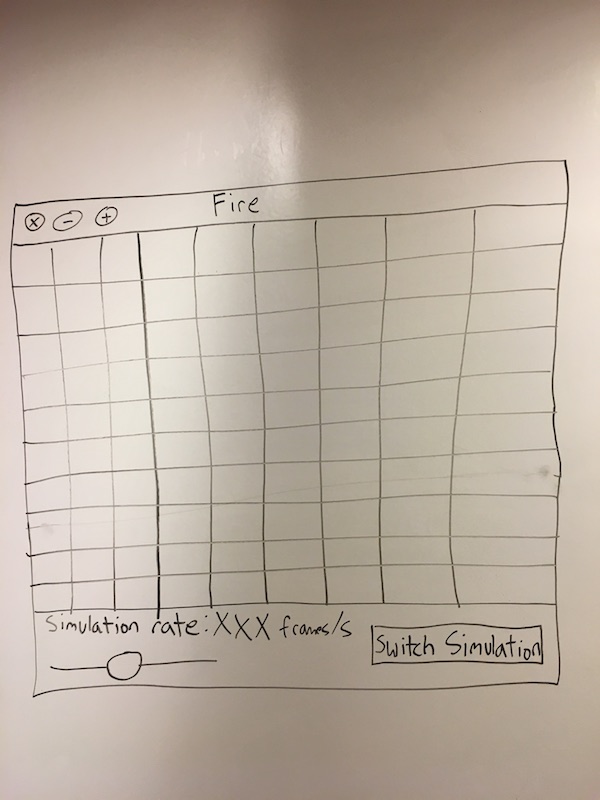 Fire
Simulation rate: XXX frames/s
Switch Simulation